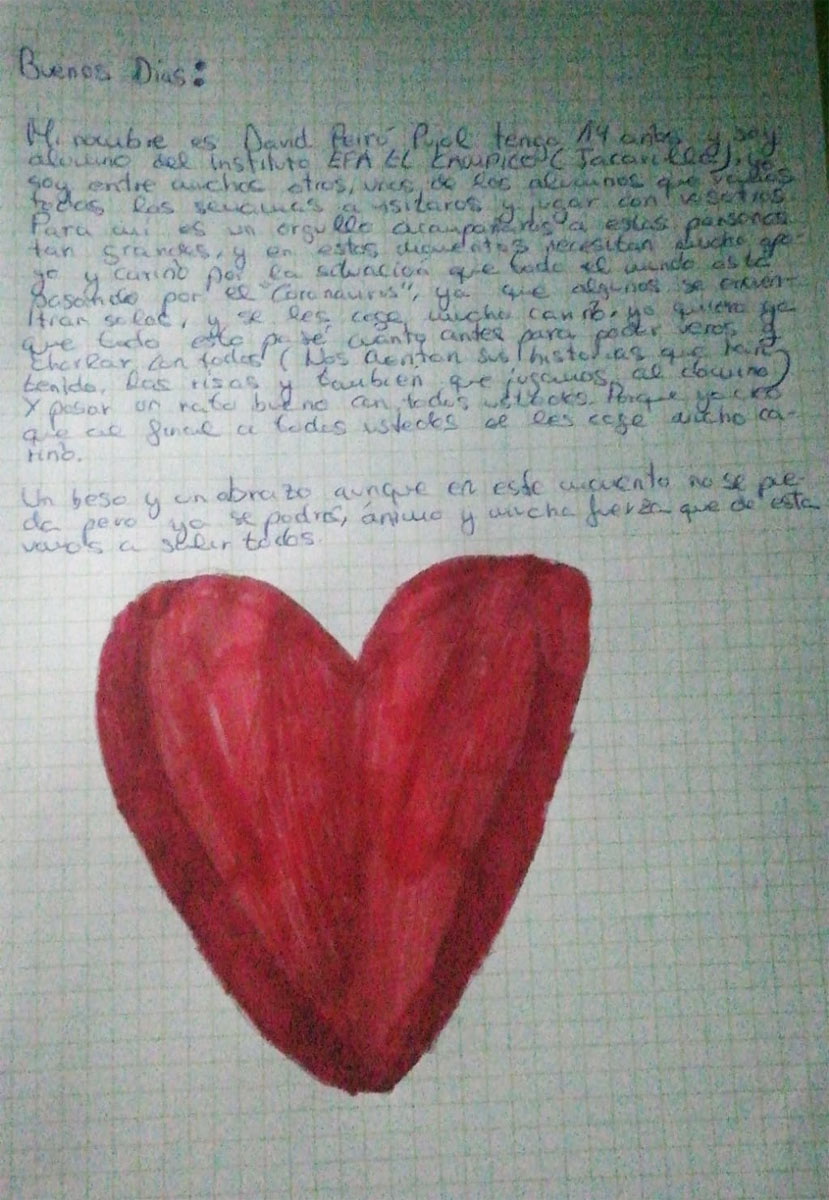 Buenos Dias:
Mi nombre es David Peiró Pujol tengo 14 años y soy
alumno del instituto EFA EL Campico (Jacarilla), yo
soy entre muchos otros, unos de los alumnos que vamos
todas las semanas a visitaros y jugar con vosotros
Para mi es un orgullo acompañaros a estas personas
tan grandes, y en estos momentos necesitan mucho apo-
yo y cariño por la situación que todo el mundo esta
pasando por el "Coronavirus", ya que algunos se encuen-
tran solos, y se les coge mucho cariño, yo quiero ya
que todo esto pase cuanto antes para poder veros y
charlar con todos (Nos cuentan sus historias que han
tenido, las risas y tambien que jugamos al domino)
Y pasar un rato bueno con todos ustedes. Porque yo creo
que al final a todos ustedes se les coge mucho ca-
riño.
Un beso y un abrazo aunque en este momento no se pue-
da pero ya se podra, ánimo y mucha fuerza que de esta
vamos a salir todos.